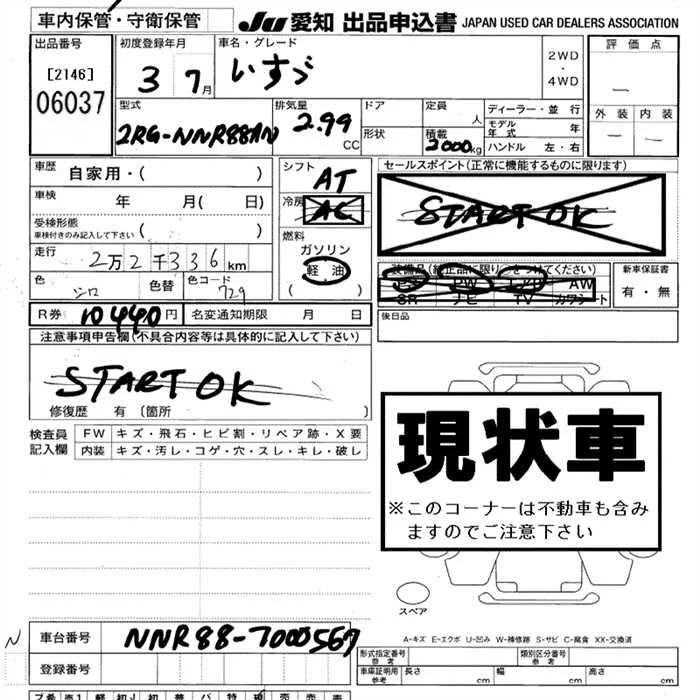 車内保管・守衛保管 JU 愛知 出品申込書 JAPAN USED CAR DEALERS ASSOCIATION
出品番号 初度登録年月 車名・グレード 評価点
[2146] 3 7月 いすゞ 2WD・4WD —
06037
型式 排気量 ドア 定員 ディーラー・並行 外装 内装
2RG-NNR88AN 2.99 CC 形状 人 モデル年式 年 — —
積載 2000kg ハンドル 左・右
車歴 自家用・( ) シフト AT セールスポイント(正常に機能するものに限ります)
車検 年 月( 日) 冷房 AC START OK
受検形態 車検付きのみ記入して下さい ( ) 燃料
走行 2万2千336km ガソリン 装備品(純正品に限り○をつけてください) 新車保証書
色 シロ 色替 色コード 729 軽油 ( ) PS PW AW 有・無
SR ナビ TV カワシート
R券 10440円 名変通知期限 月 日 後日品
注意事項申告欄(不具合内容等は具体的に記入して下さい)
START OK
修復歴 有〔箇所 〕
検査員記入欄 FW キズ・飛石・ヒビ割・リペア跡・X要
内装 キズ・汚レ・コゲ・穴・スレ・キレ・破レ
現状車
※このコーナーは不動車も含み
ますのでご注意下さい
スペア
A-キズ E-エクボ U-凹み W-補修跡 S-サビ C-腐食 XX-交換済
N 車台番号 NNR88-7000567
登録番号 形式指定番号 参考 類別区分番号 参考
車庫証明用 参考 長さ cm 幅 cm 高さ cm